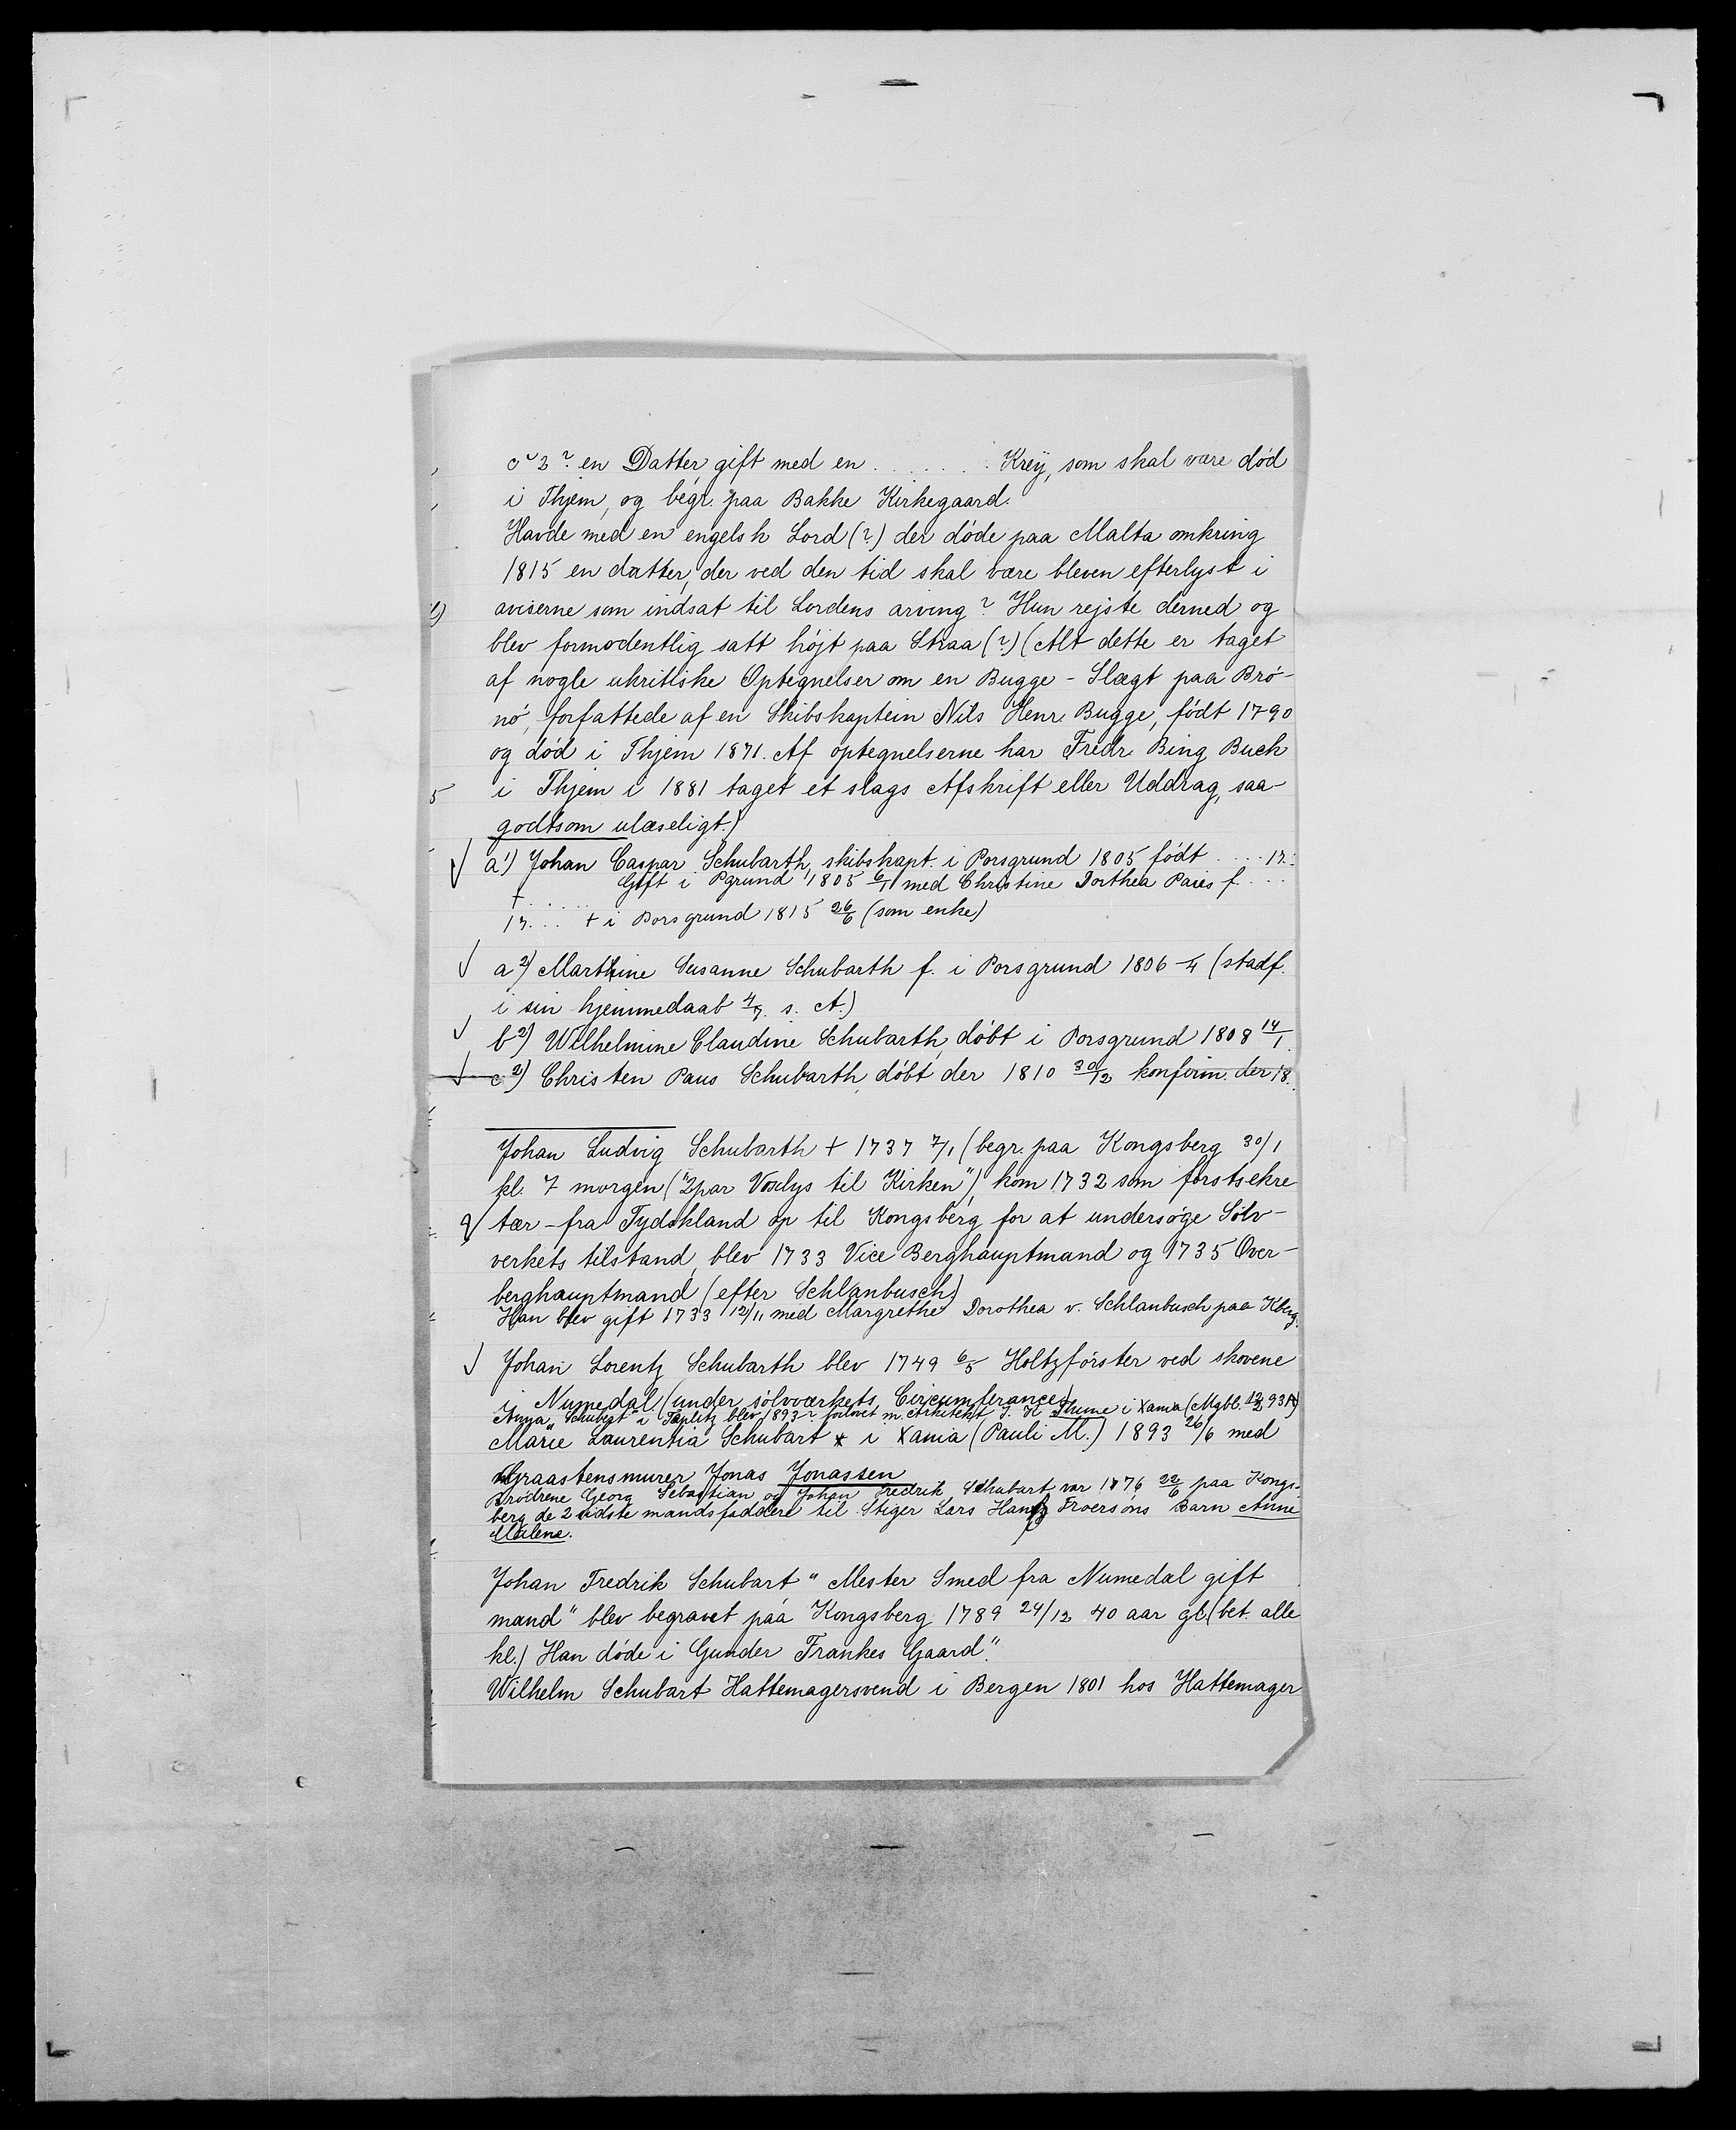 en Datter, gift med en . . . . . . . Kreÿ, som skal være død
i Thjem, og begr. paa Bakke Kirkegaard.
Havde med en engelsk Lord (?) der døde paa Malta omkring
1815 en datter, der ved den tid skal være bleven efterlyst i
aviserne som indsat til Lordens arving? Hun rejste derned og
blev formodentlig satt højt paa Straa (?) (Alt dette er taget
af nogle ukritiske Optegnelser om en Bugge - Slægt paa Brø-
nø, forfattede af en Skibskaptein Nils Henr. Bugge, født 1790
og død i Thjem 1871. Af optegnelserne har Fredr. Bing Buck
i Thjem i 1881 taget et slags Afskrift eller Uddrag, saa-
godtsom ulæseligt.)
a1) Johan Caspar Schubarth, skibskapt. i Porsgrund 1805 født .... 17..
Gift i Pgrund 1805 6/1 med Christine Dorthea Paus f. ...
17.... + i Porsgrund 1815 26/6 (som enke)
a2) Marthine Susanne Schubarth f. i Porsgrund 1806 (stadf.
i sin hjemmedaab s. A.)
b2) Wilhelmine Claudine Schubarth, døbt i Porsgrund 1808 14/1.
c2) Christen Paus Schubarth, døbt der 1810 30/12 konfirm. der 18..
Johan Ludvig Schubarth + 1737 7/1 (begr. paa Kongsberg 30/1
kl. 7 morgen ("2 par Voxlys til Kirken"), kom 1732 som forstsekre
tær - fra Tydskland op til Kongsberg for at undersøge Sølv-
verkets tilstand, blev 1733 Vice Berghauptmand og 1735 Over-
berghauptmand (efter Schlanbusch)
Han blev gift 1733 12/11 med Margrethe Dorothea v. Schlanbusch paa Kbrg.
Johan Lorentz Schubarth blev 1749 6/5 Holtzförster ved skovene
i Numedal (under sølvværkets Circumferance)
Anna Schubart i Tøplitz blev 1893 forlovet m. Arkitekt J. K. Thume i Xania (Mgbl. 93 A)
Marie Laurentia Schubart i Xania (Pauli M.) 1893 26/6 med
Graastensmurer Jonas Jonassen
Brødrene Georg Sebastian og Johan Fredrik Schubart var 1776 22/6 paa Kongs-
berg de 2 sidste mandsfaddere til Stiger Lars Froersøns Barn Anne
Malena.
Johan Fredrik Schubart "Mester Smed fra Numedal gift
mand" blev begravet paa Kongsberg 1789 24/12 40 aar gl. (bet. alle
kl.) Han døde i Gunder Frankes Gaard".
Wilhelm Schubart Hattemagersvend i Bergen 1801 hos Hattemager